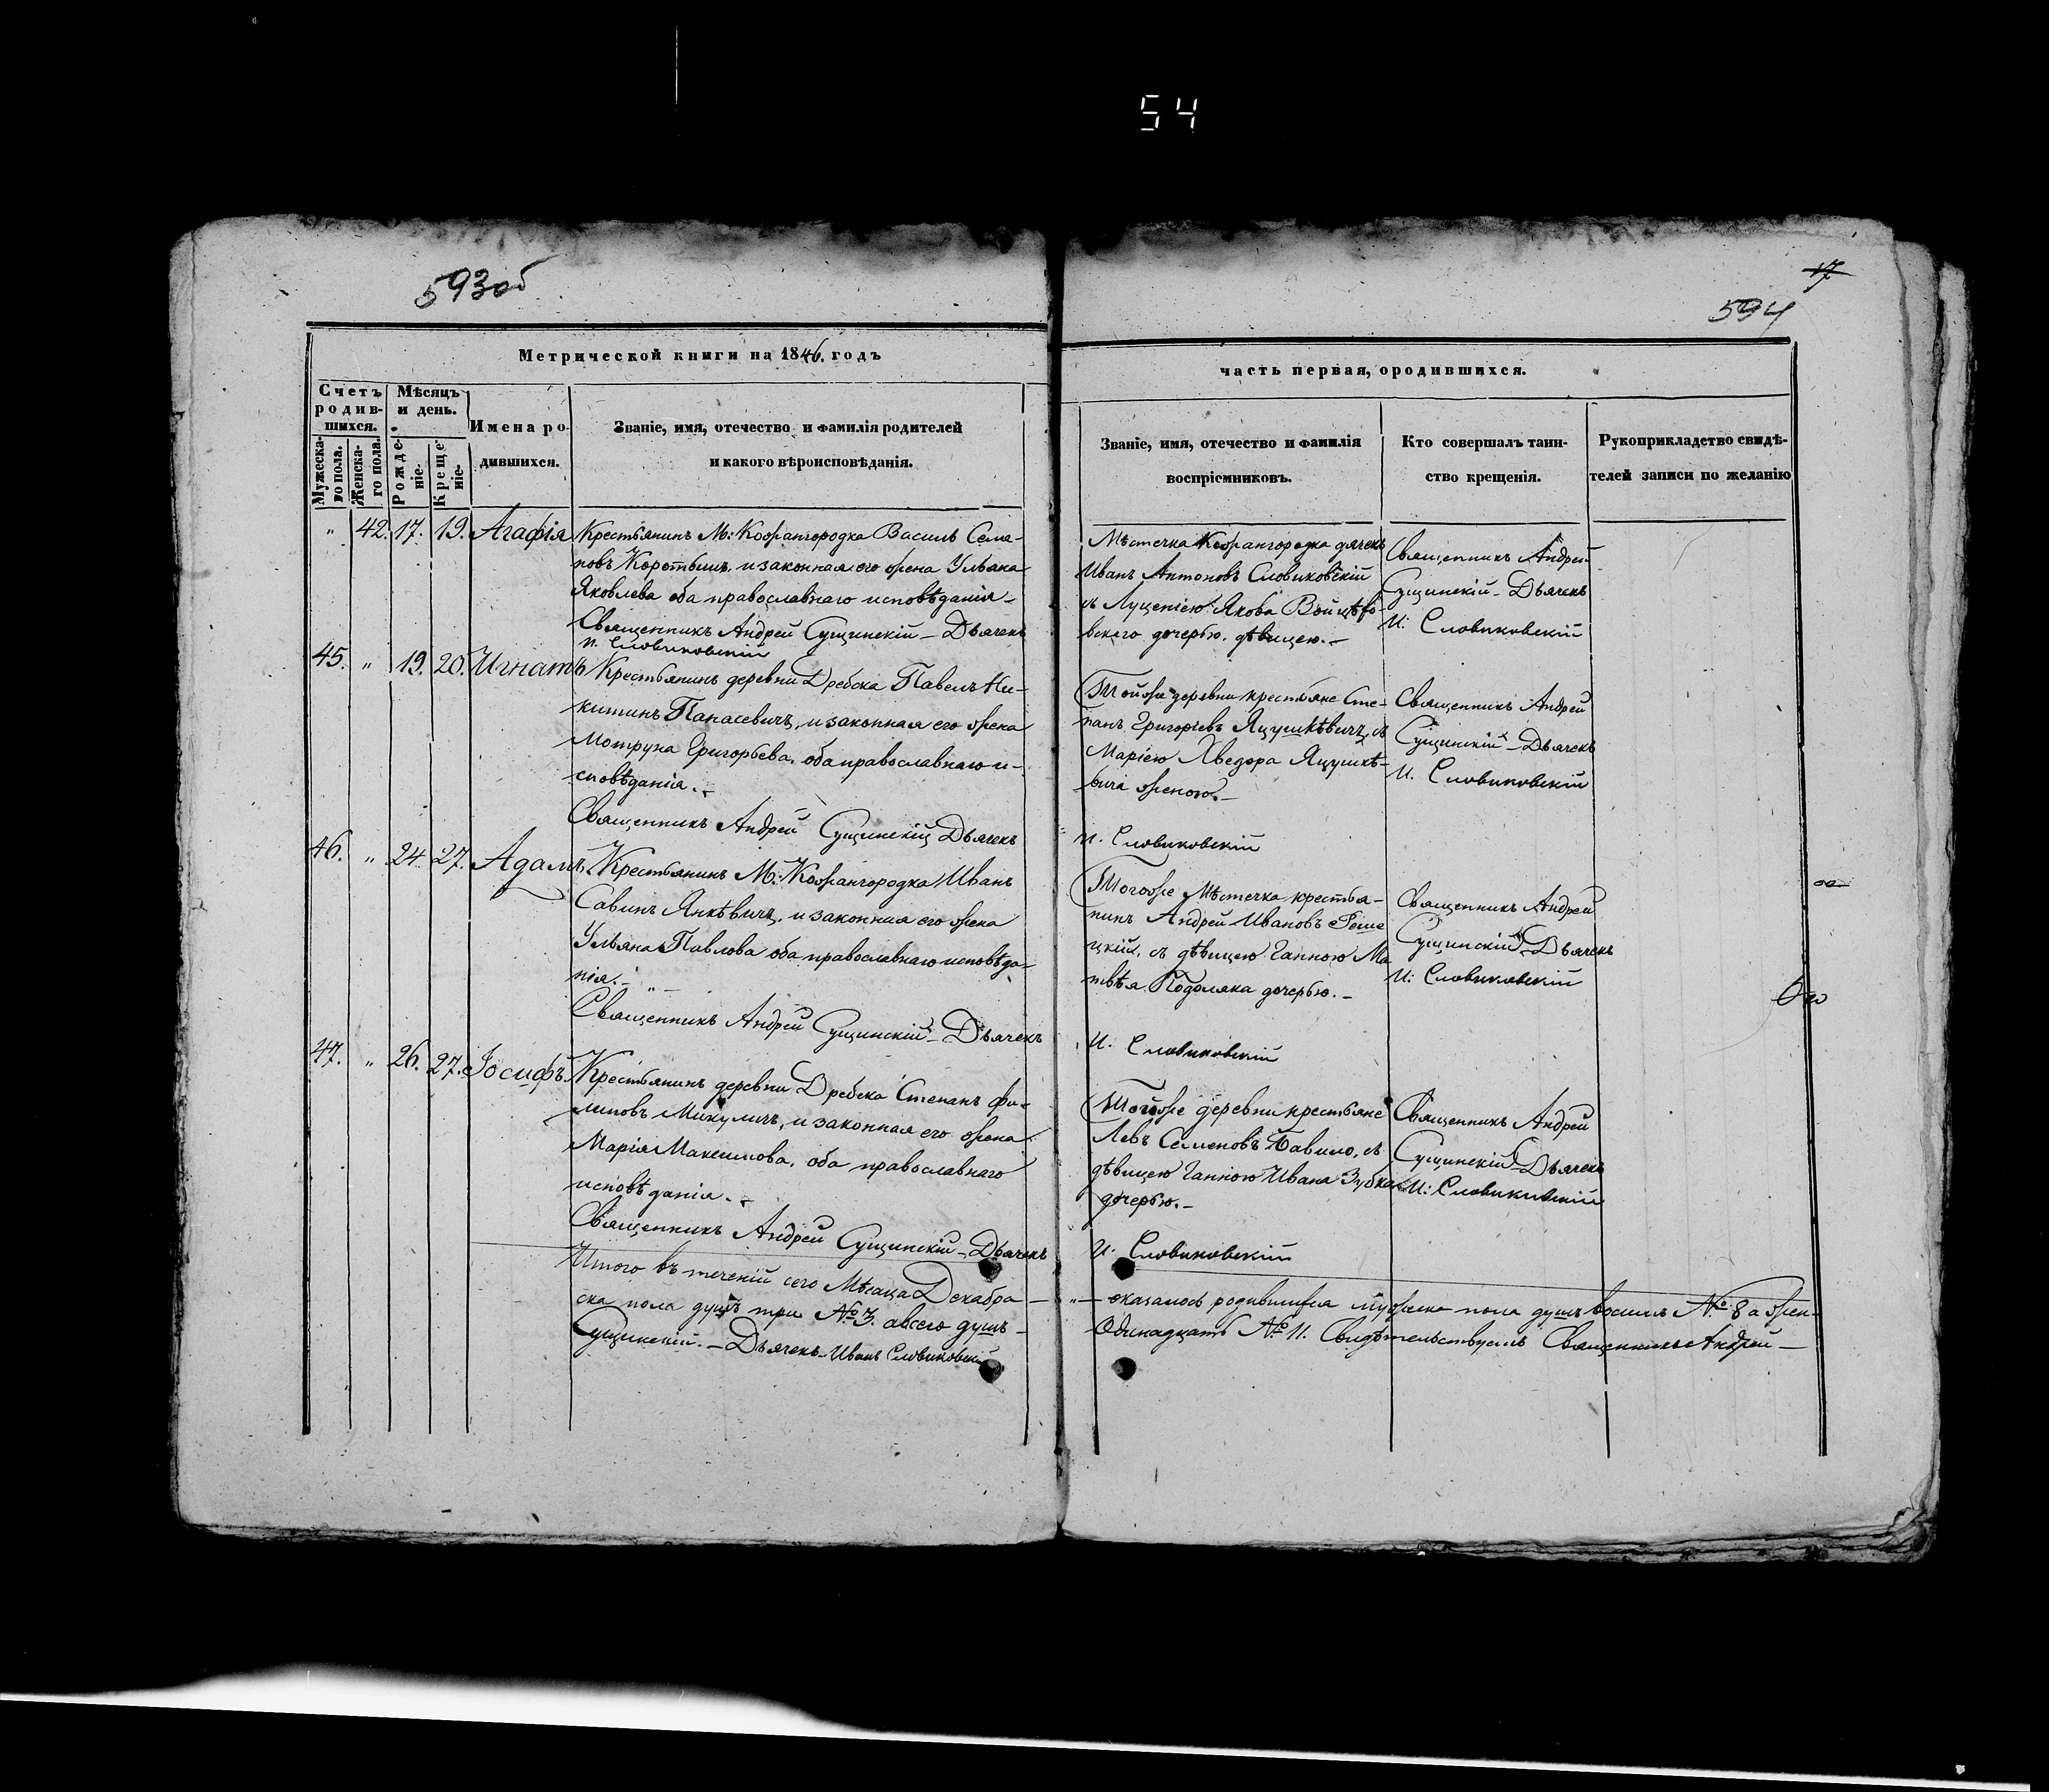 54
593об
17
594
Метрической книги на 1846. годъ
часть первая, ородившихся.
Счетъ родив-шихся.
Мѣсяцъ и день.
Имена ро-
дившихся.
Мужеска-го пола.
Женска-го пола.
Рожде-ніе.
Креще-ніе.
Званіе, имя, отечество и фамилія родителей
и какого вѣроисповѣданія.
Званіе, имя, отечество и фамилія
воспріемниковъ.
Кто совершалъ таин-
ство крещенія.
Рукоприкладство свидѣ-
телей записи по желанію
" 42. 17. 19. Агафія Крестьянинъ М: Кожангородка Василь Семе-
новъ Коротышъ, и законная его жена Ульяна
Яковлева оба православнаго исповѣданія –
Священникъ Андрей Сущинскій – Дьячекъ
И. Словиковскій
Мѣстечка Кожангородка дячекъ
Иванъ Антоновъ Словиковскій
съ Луценіею Якова Войцѣхо-
вскаго дочерью, дѣвицею. –
Священникъ Андрей
Сущинскій – Дьячекъ
И: Словиковскій
45. " 19. 20. Игнатъ Крестьянинъ деревни Дребска Павелъ Ни-
китинъ Панасевичъ, и законная его жена
Мотруна Григорьева, оба православнаго и-
сповѣданія. –
Священникъ Андрей Сущинскій Дьячекъ
И. Словиковскій
Тойже деревни крестьяне Сте-
панъ Григорьевъ Яцушкѣвичъ, съ
Маріею Хведора Яцушкѣ-
вича женою. –
Священникъ Андрей
Сущинскій – Дьячекъ
И. Словиковскій
46. " 24. 27. Адамъ. Крестьянинъ М: Кожангородка Иванъ
Савинъ Янкѣвичъ, и законная его жена
Ульяна Павлова оба православнаго исповѣда-
нія. – " –
Священникъ Андрей Сущинскій – Дьячекъ
И. Словиковскій
Тогоже Мѣстечка крестья-
нинъ Андрей Ивановъ Реше
цкій, съ дѣвицею Ганною Ма
твѣя Подоляка дочерью. –
Священникъ Андрей
Сущинскій – Дьячекъ
И: Словиковскій
47. " 26. 27. Іосифъ. Крестьянинъ деревни Дребска Степанъ Фи-
липовъ Микуличъ, и законная его жена
Марія Максимова, оба православнаго
исповѣданія. –
Священникъ Андрей Сущинскій – Дьячекъ
И. Словиковскій
Тойже деревни крестьяне
Левъ Семеновъ Бавило, съ
дѣвицею Ганною Ивана Зубка
дочерью. –
Священникъ Андрей
Сущинскій – Дьячекъ
И: Словиковскій
Итого въ теченіи сего Мѣсяца Декабра – " – оказалось родившихся мужеска пола душъ восимъ № 8 а жен-
ска пола душъ три № 3. а всего душъ – Одинадцать № 11. Свидѣтельствуемъ Священникъ Андрей –
Сущинскій. – Дьячекъ Иванъ Словиковскій